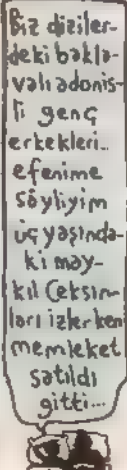 Biz diziler-
deki bakla-
valı adonis-
li genç
erkekleri..
efenime
söyliyim
üç yaşında-
ki may-
kıl Ceksın-
ları izlerken
memleket
satıldı
gitti...